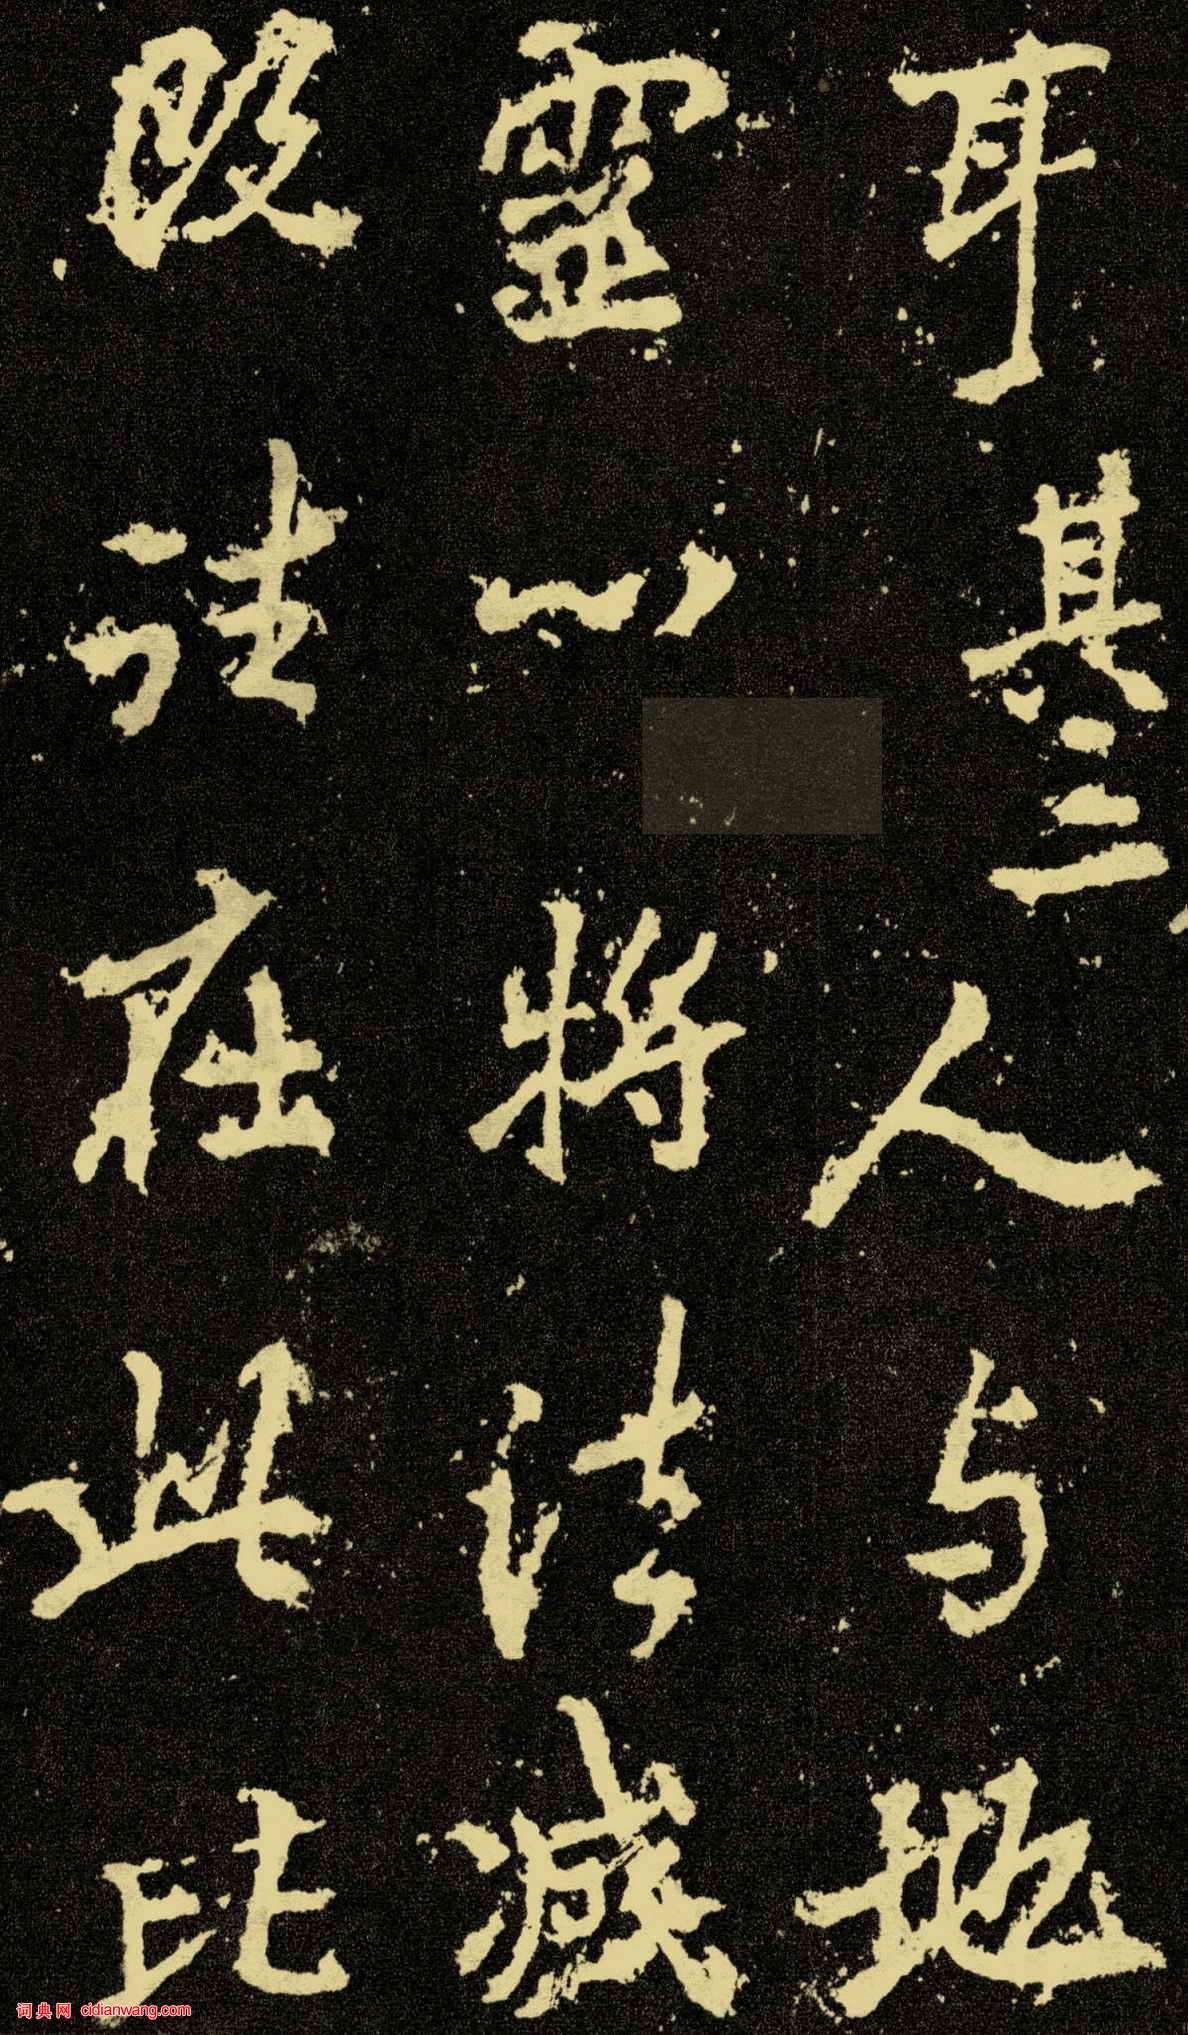 耳其三人与地
靈一以将法滅
段註在此比
词典网 cidianwang.com